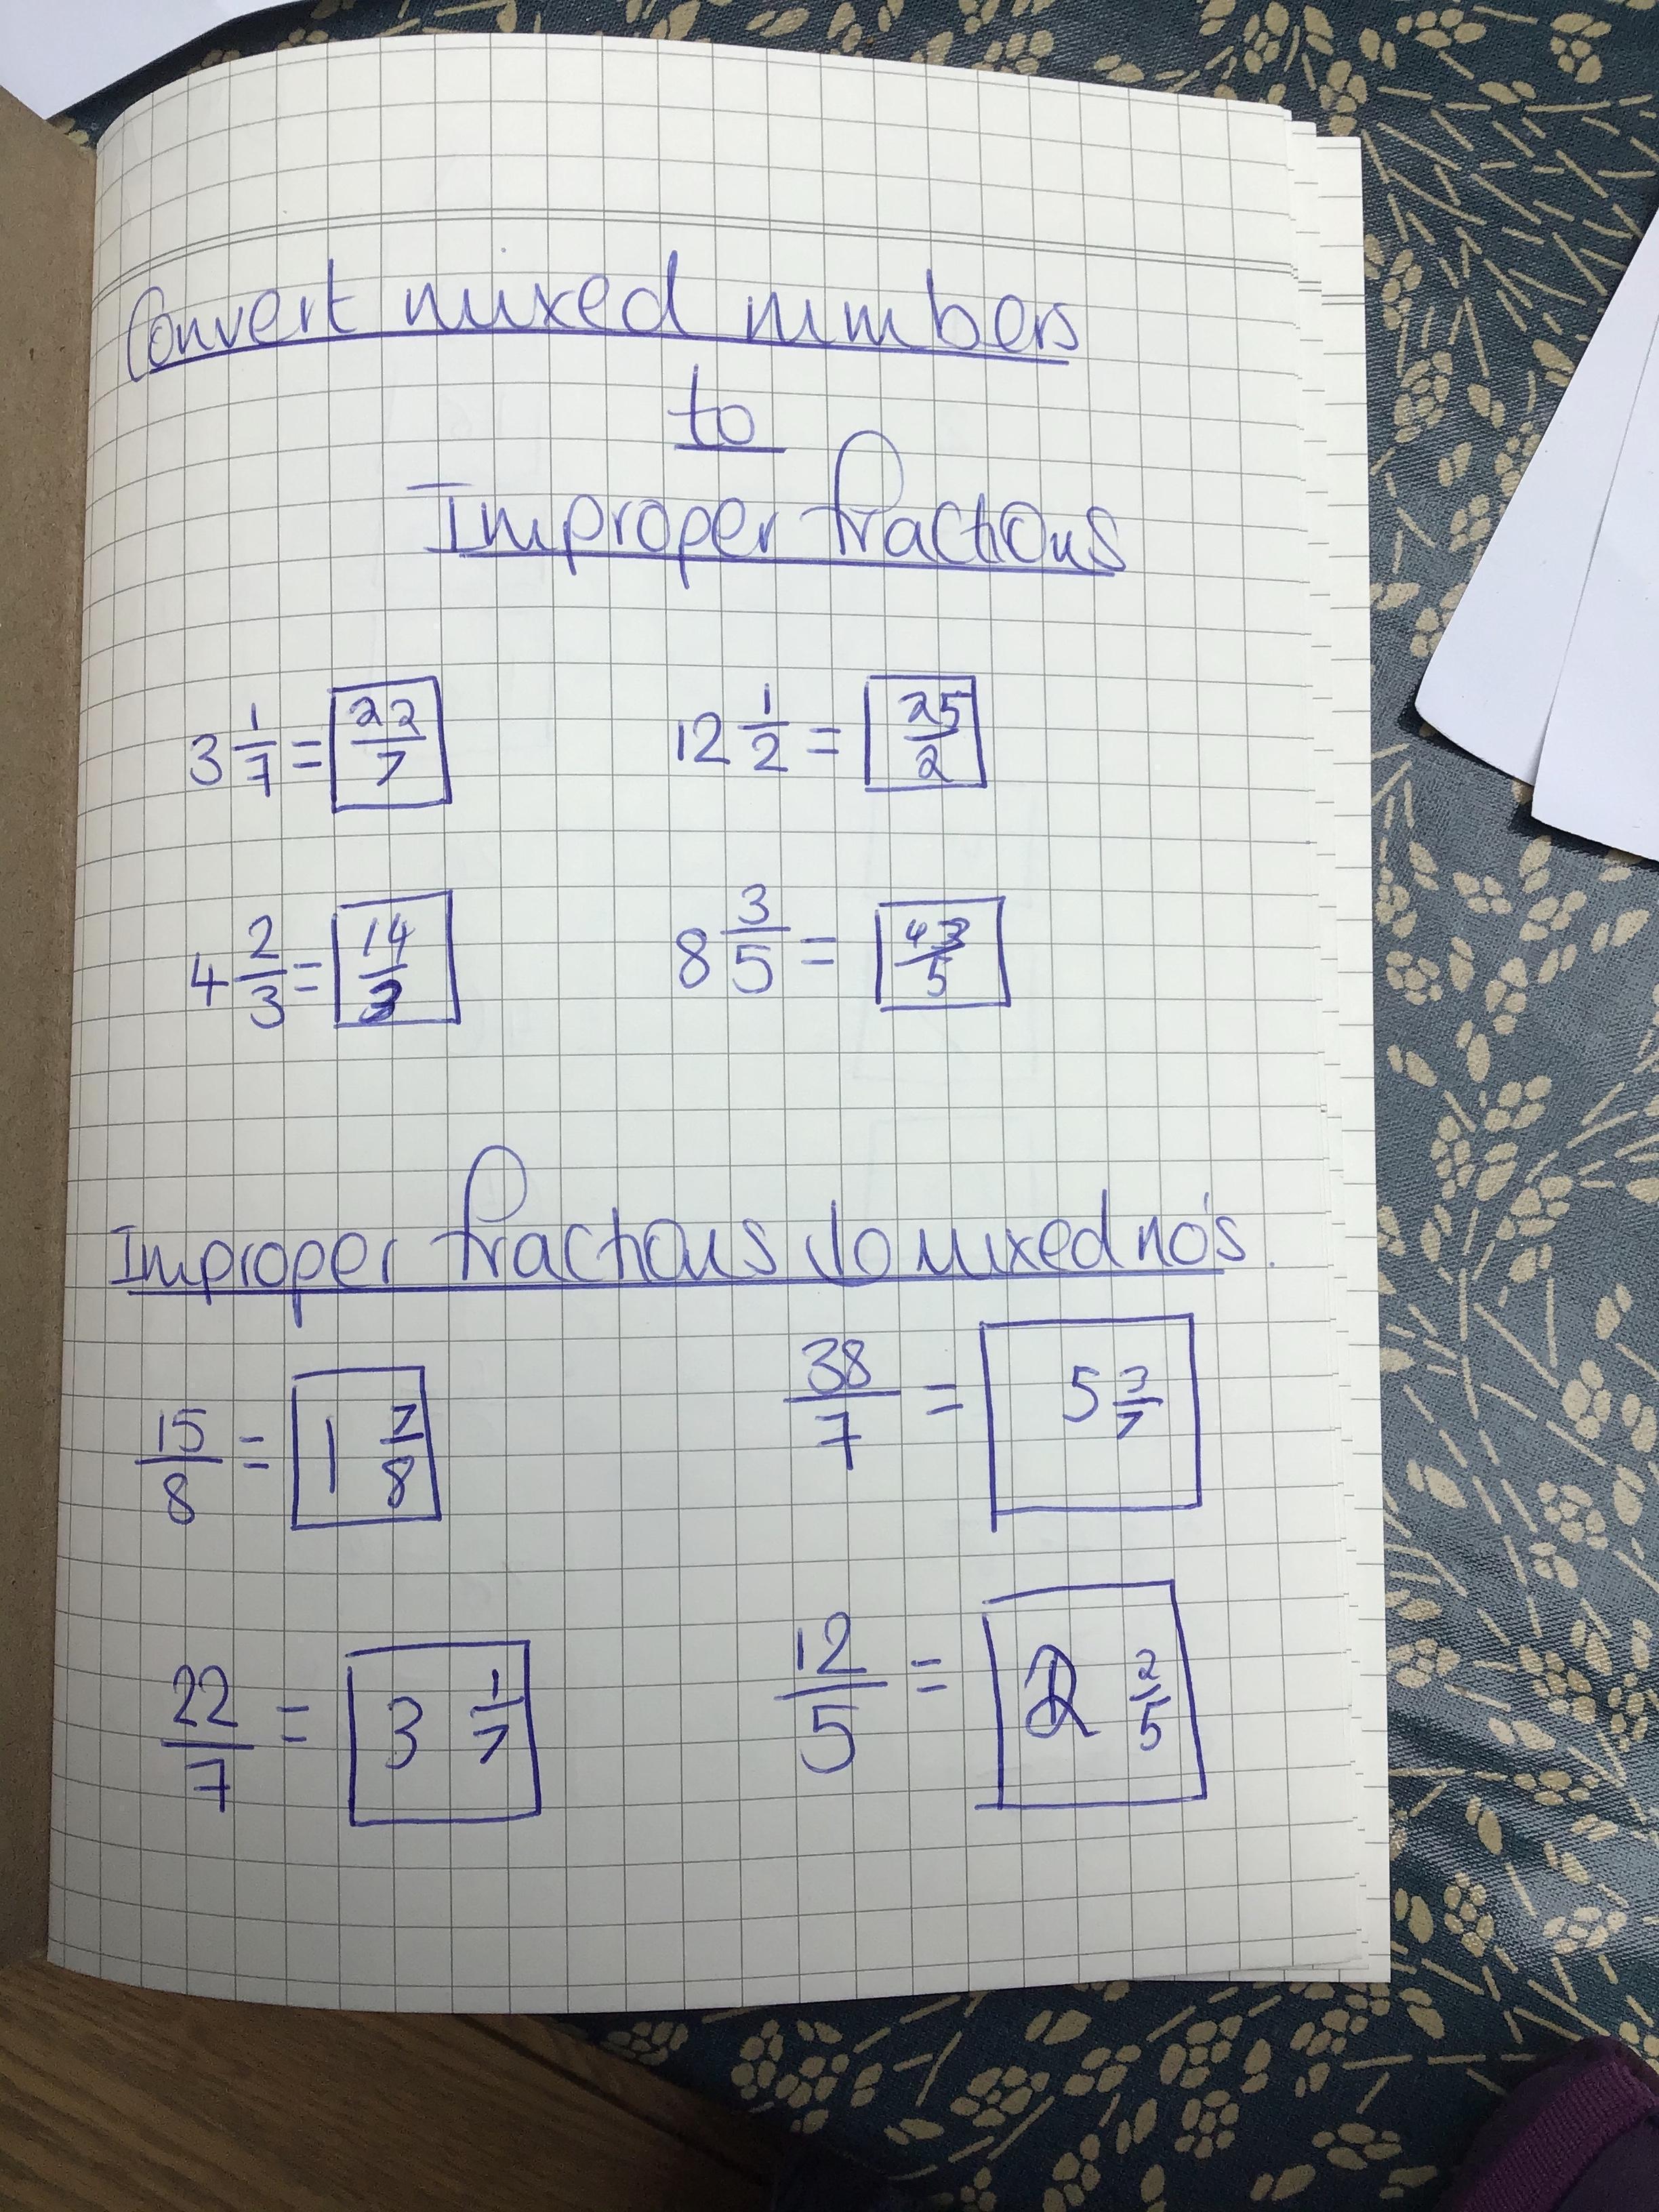 Convert mixed numbers
to
Improper fractions
3 1/7 = 22/7    12 1/2 = 25/2
4 2/3 = 14/3    8 3/5 = 43/5
Improper fractions to mixed no's.
15/8 = 1 7/8    38/7 = 5 3/7
22/7 = 3 1/7    12/5 = 2 2/5